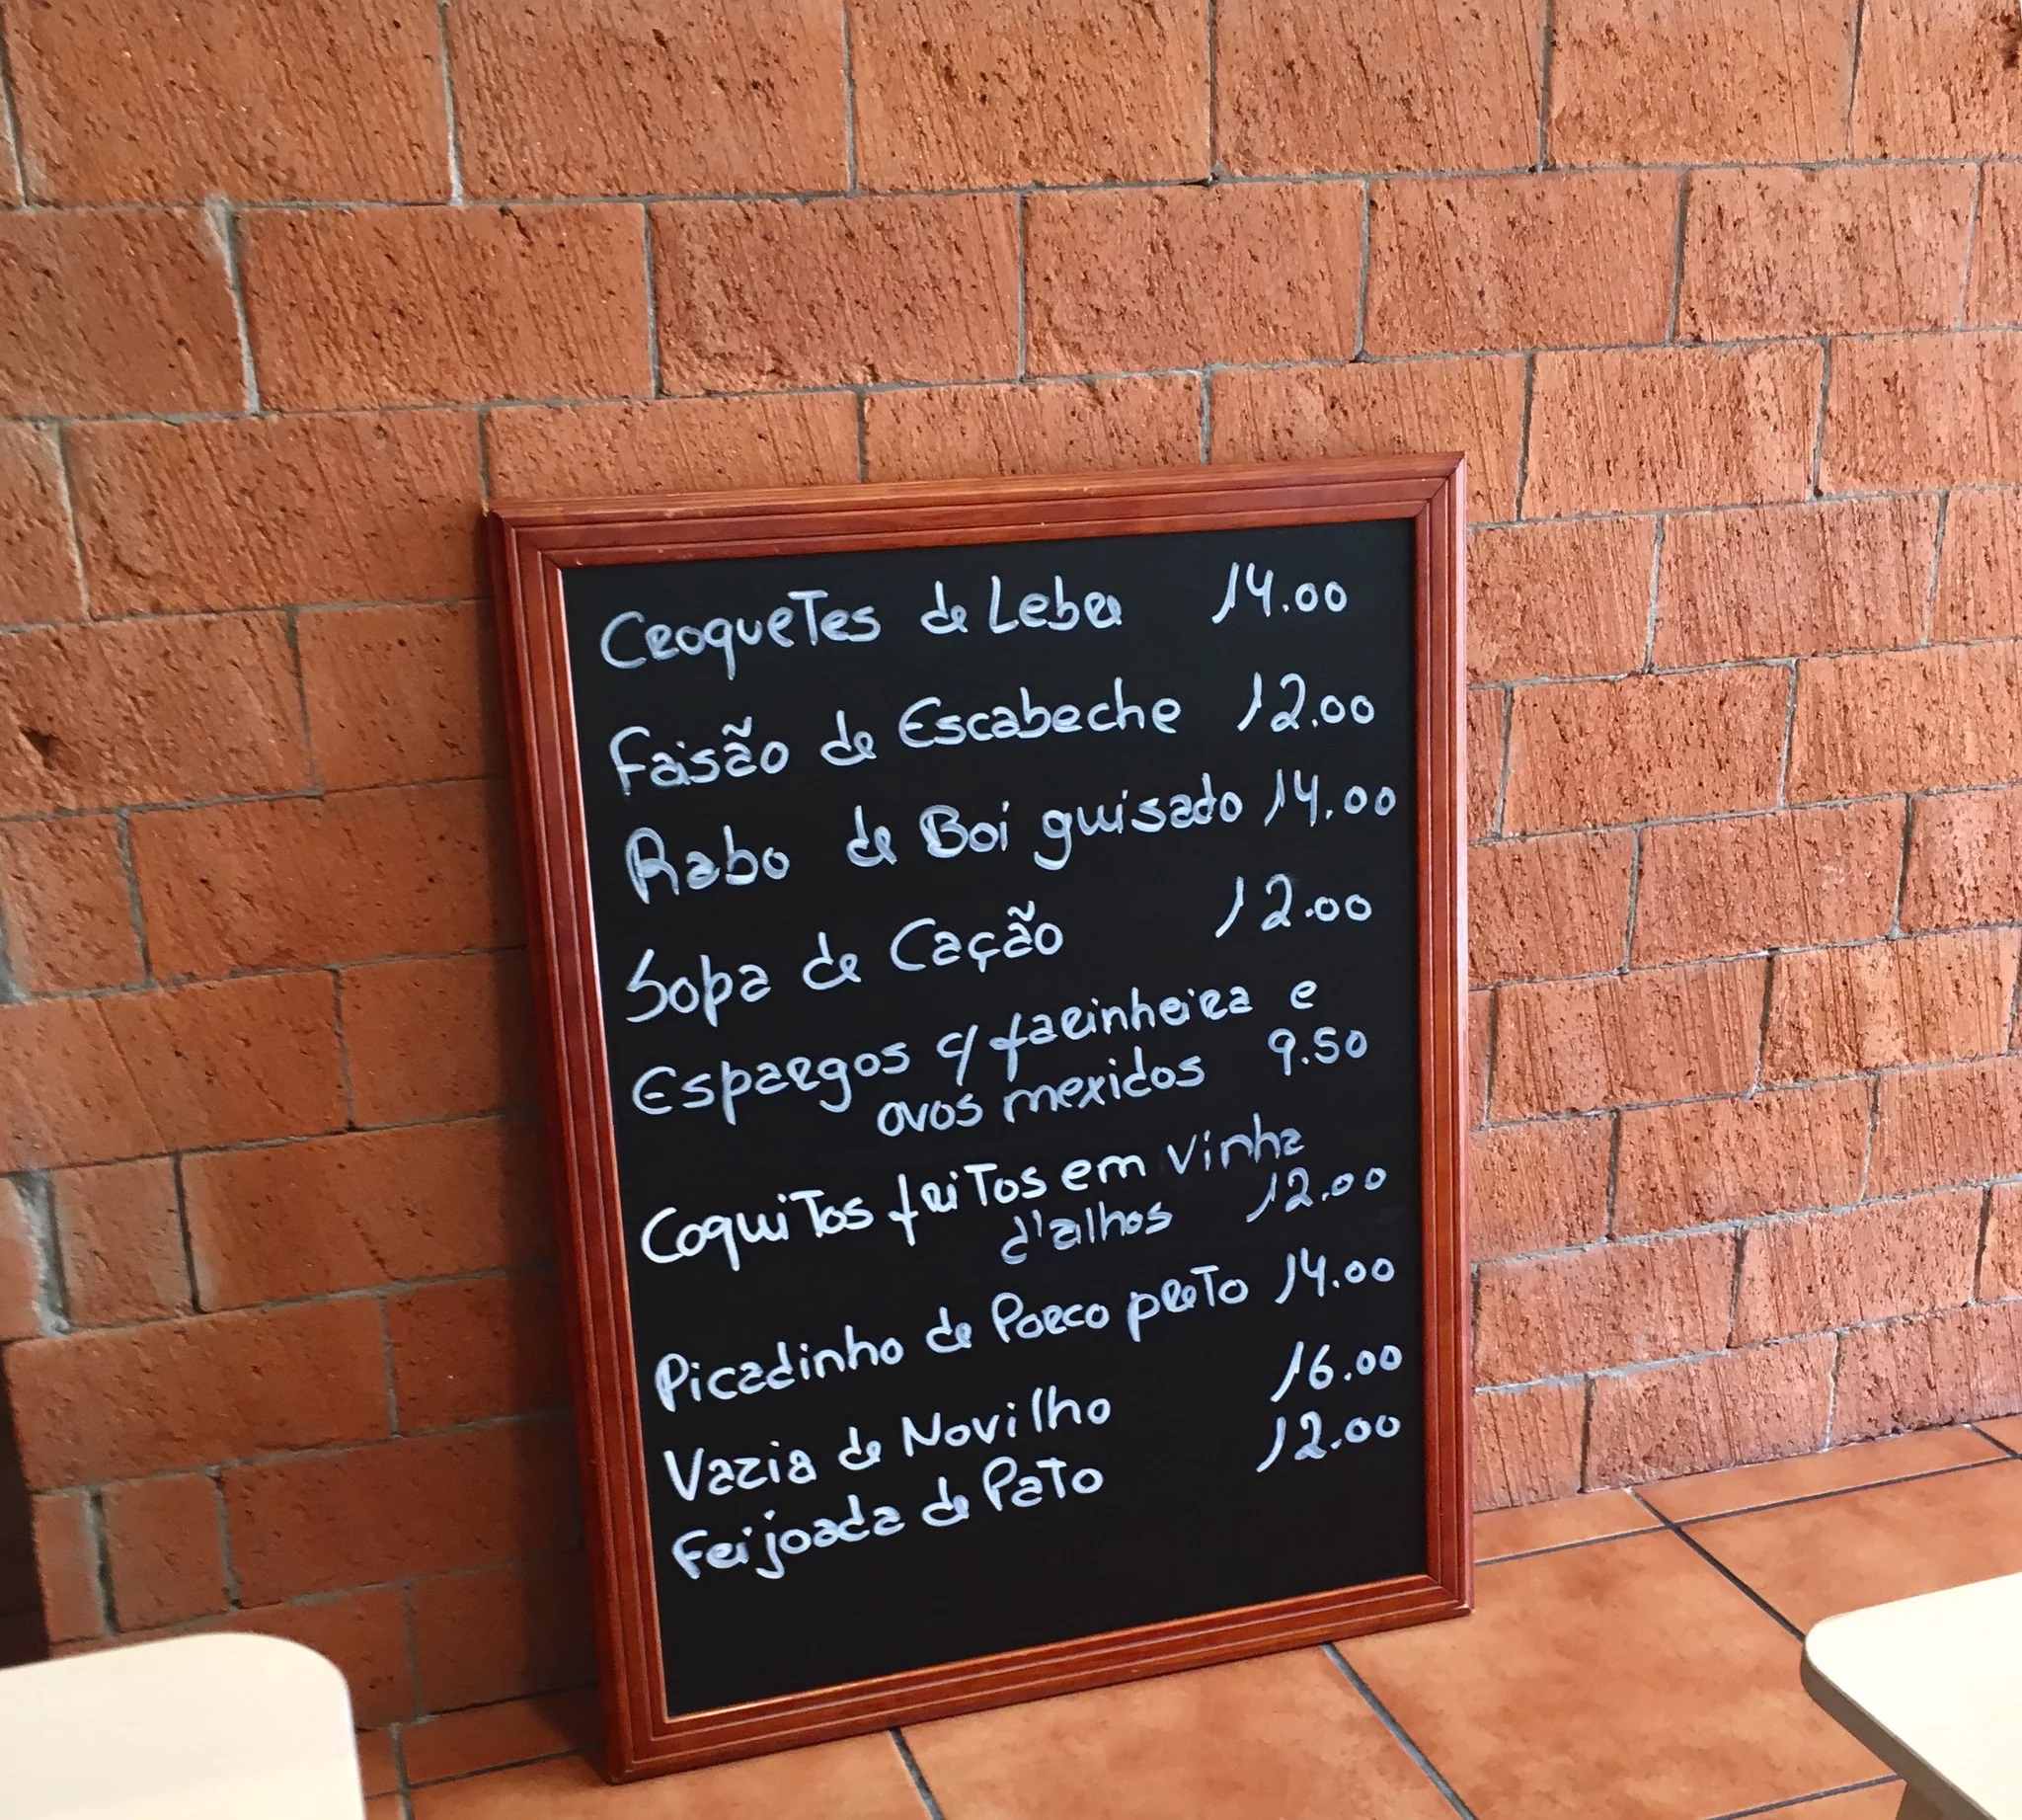 Croquetes de Lebre 14.00
Faisão de Escabeche 12.00
Rabo de Boi guisado 14.00
Sopa de Cação 12.00
Espargos c/ farinheira e
ovos mexidos 9.50
Coquitos fritos em vinha
d'alhos 12.00
Picadinho de Porco preto 14.00
Vazia de Novilho 16.00
Feijoada de Pato 12.00